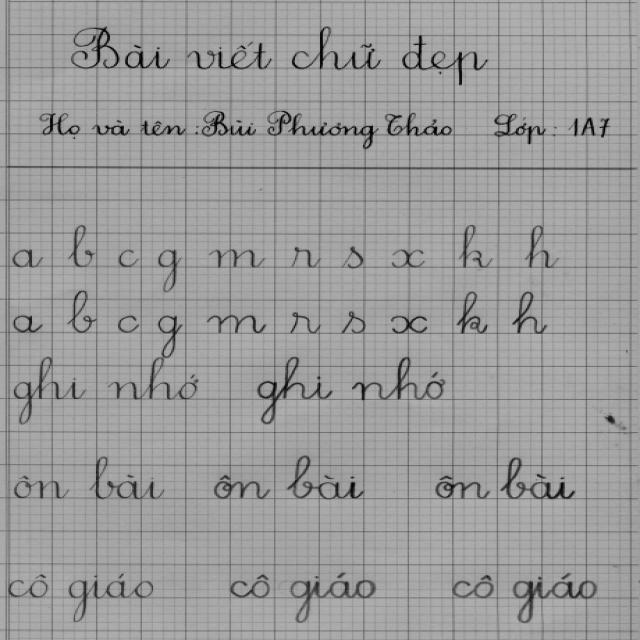 Bài viết chữ đẹp
Họ và tên : Bùi Phương Thảo Lớp : 1A7
a b c g m r s x k h
a b c g m r s x k h
ghi nhớ ghi nhớ
ôn bài ôn bài ôn bài
cô giáo cô giáo cô giáo